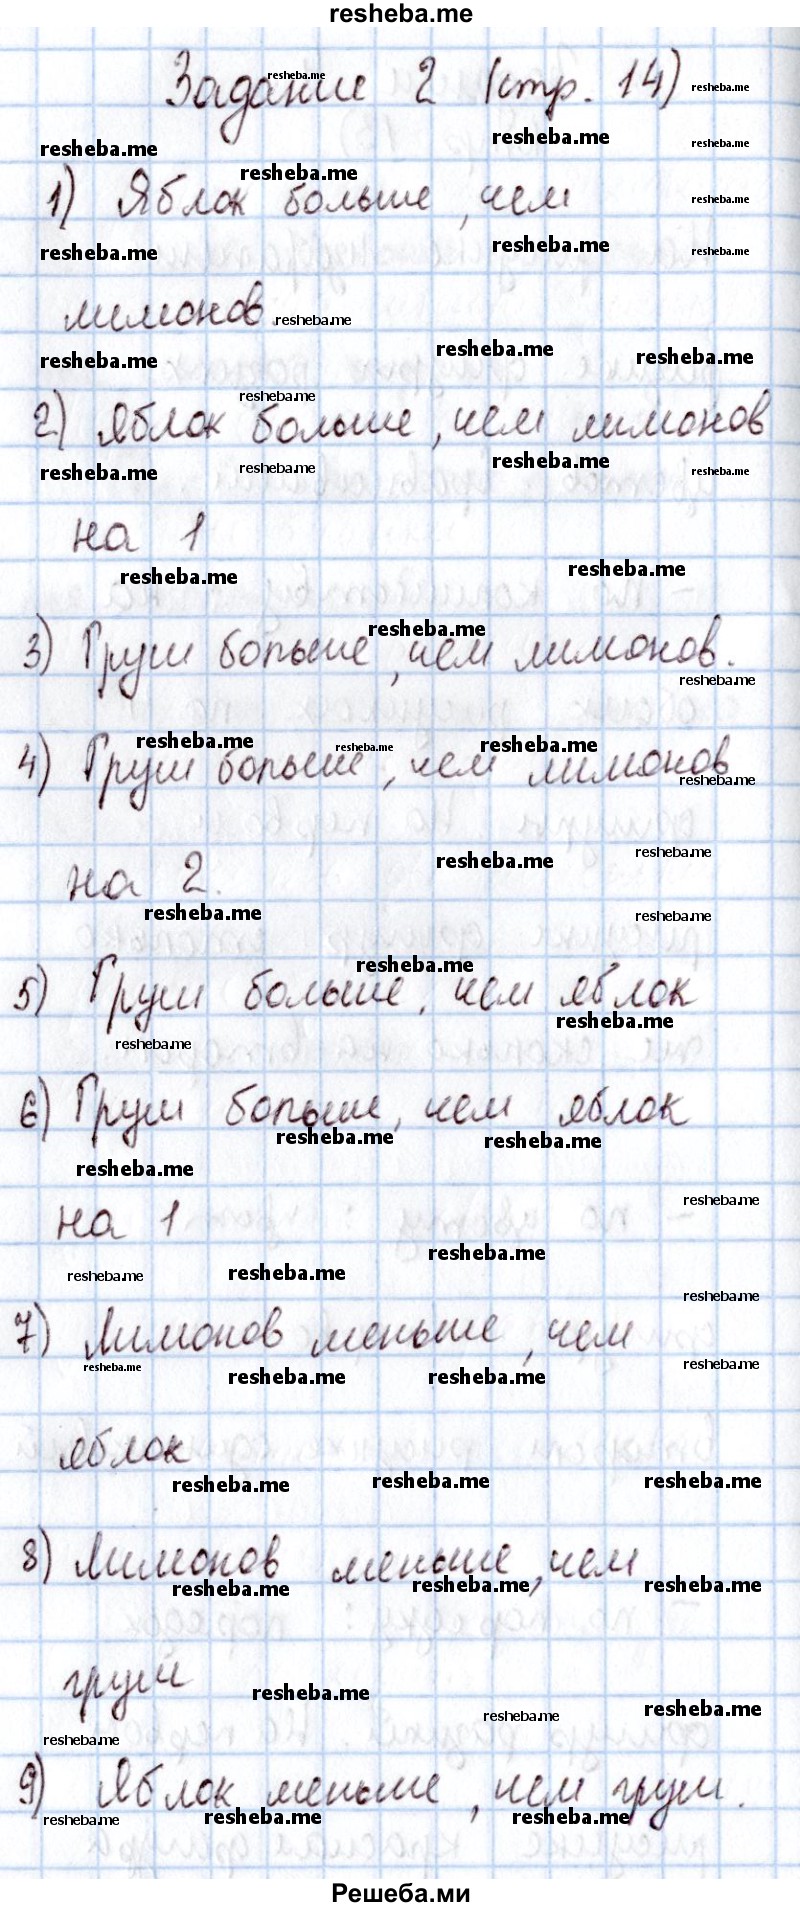 resheba.me
Задание 2 (стр. 14)
1) Яблок больше, чем
лимонов.
2) Яблок больше, чем лимонов
на 1
3) Груш больше, чем лимонов.
4) Груш больше, чем лимонов
на 2.
5) Груш больше, чем яблок
6) Груш больше, чем яблок
на 1
7) Лимонов меньше, чем
яблок
8) Лимонов меньше, чем
груш
9) Яблок меньше, чем груш.
Решеба.ми